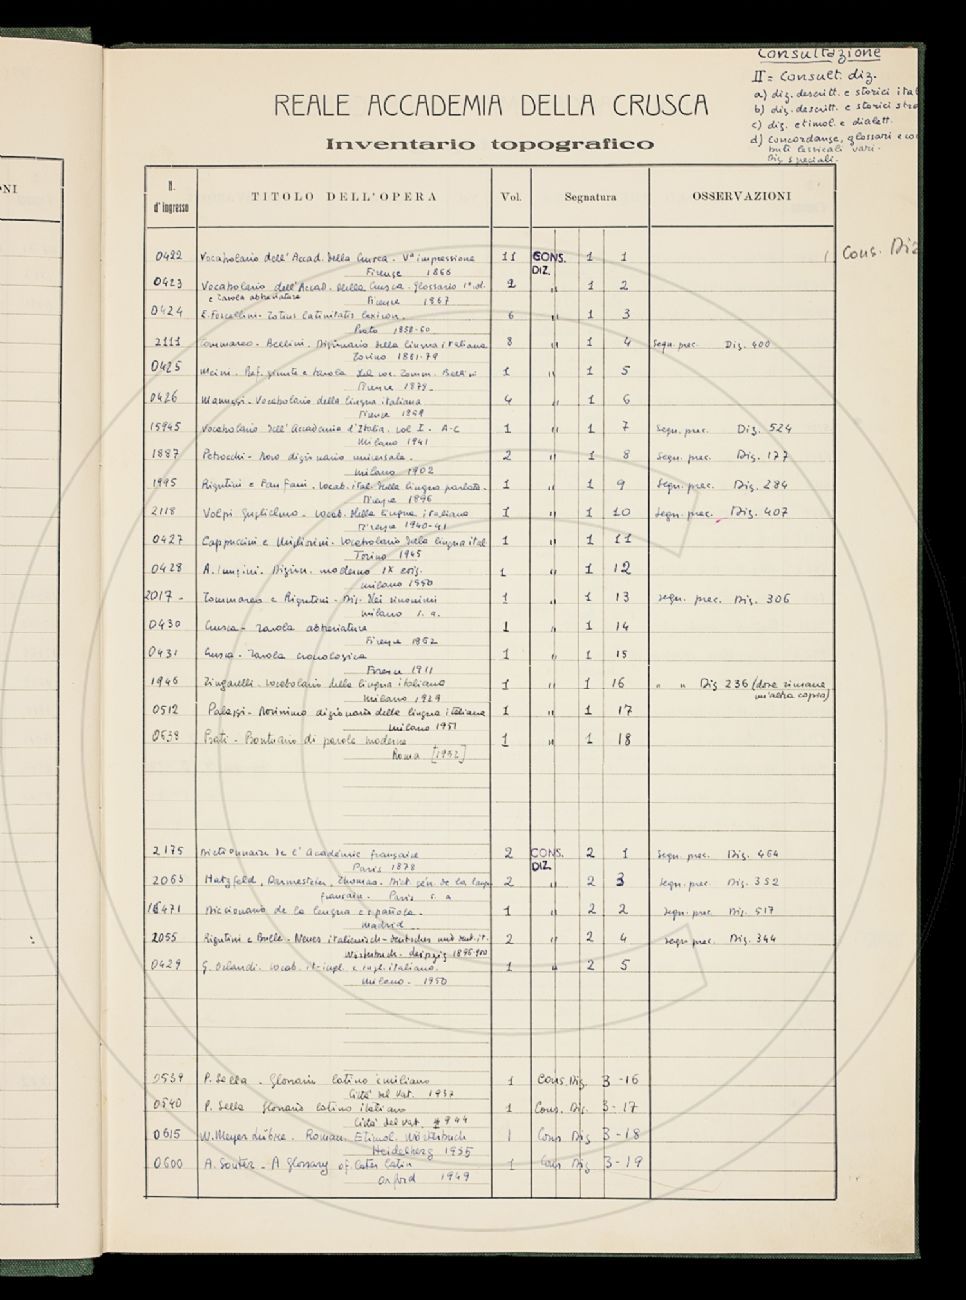 Consultazione
II = Consult. diz.
a) diz. descritt. e storici ital
b) diz. descritt. e storici stra
c) diz. etimol. e dialett.
d) concordanze, glossari e co
buti lessicali vari.
Diz speciali.
REALE ACCADEMIA DELLA CRUSCA
Inventario topografico
NI
N. d'ingresso TITOLO DELL'OPERA Vol. Segnatura OSSERVAZIONI
Cons. Diz
0422 Vocabolario dell'Accad. della Crusca. Vª impressione 11 CONS. DIZ. 1 1
Firenze 1866
0423 Vocabolario dell'Accad. della Crusca. Glossario 2 " 1 2
e tavola abbreviature Firenze 1867
0424 E. Forcellini. Totius latinitatis lexicon. 6 " 1 3
Prato 1858-60
2111 Tommaseo - Bellini. Dizionario della lingua italiana 8 " 1 4 Segn. prec. Diz. 400
Torino 1861-79
0425 Meini. Ref. giunte e tavola del voc. Tomm. Bellini 1 " 1 5
Firenze 1879.
0426 Manuzzi - Vocabolario della lingua italiana 4 " 1 6
Firenze 1859
15945 Vocabolario dell'Accademia d'Italia. vol I. A-C 1 " 1 7 Segn. prec. Diz. 524
Milano 1941
1887 Petrocchi - Novo dizionario universale. 2 " 1 8 Segn. prec. Diz. 177
Milano 1902
1995 Rigutini e Fanfani. Vocab. ital. della lingua parlata. 1 " 1 9 Segn. prec. Diz. 284
Firenze 1896
2118 Volpi Guglielmo. Vocab. della lingua italiana 1 " 1 10 Segn. prec. Diz. 407
Firenze 1940-41
0427 Cappuccini e Migliorini. Vocabolario della lingua ital 1 " 1 11
Torino 1945
0428 A. Panzini. Dizion. moderno IX ediz. 1 " 1 12
Milano 1950
2017 - Tommaseo e Rigutini - Diz. dei sinonimi 1 " 1 13 Segn. prec. Diz. 306
Milano s. a.
0430 Crusca - Tavola abbreviature 1 " 1 14
Firenze 1952
0431 Crusca - Tavola cronologica 1 " 1 15
Firenze 1911
1946 Zingarelli. Vocabolario della lingua italiana 1 " 1 16 " " Diz 236 (dove rimane
Milano 1929 un'altra copia)
0512 Palazzi - Novissimo dizionario della lingua italiana 1 " 1 17
Milano 1951
0538 Prati - Prontuario di parole moderne 1 " 1 18
Roma [1952]
2175 Dictionnaire de l'Académie française 2 CONS. DIZ. 2 1 Segn. prec. Diz. 464
Paris 1878
2063 Hatzfeld, Darmesteter, Thomas. Dict. gén. de la langue 2 " 2 3 Segn. prec. Diz. 352
français. Paris s. a
16471 Diccionario de la lengua española. 1 " 2 2 Segn. prec. Diz. 517
Madrid
2055 Rigutini e Bulle. Neues italienisch-deutsches und deut. it. 2 " 2 4 Segn. prec. Diz. 344
Wörterbuch. Leipzig 1896-900
0429 G. Orlandi. Vocab. it-ingl. e ingl. italiano. 1 " 2 5
Milano. 1950
0539 P. Sella - Glossario latino emiliano 1 Cons. Diz. 3 -16
Città del Vat. 1937
0540 P. Sella Glossario latino italiano 1 Cons. Diz. 3 - 17
Città del Vat. 1944
0615 W. Meyer Lübke. Roman. Etimol. Wörterbuch 1 Cons Diz 3 - 18
Heidelberg 1935
0600 A. Souter - A Glossary of Later Latin 1 Cons Diz 3 - 19
Oxford 1949